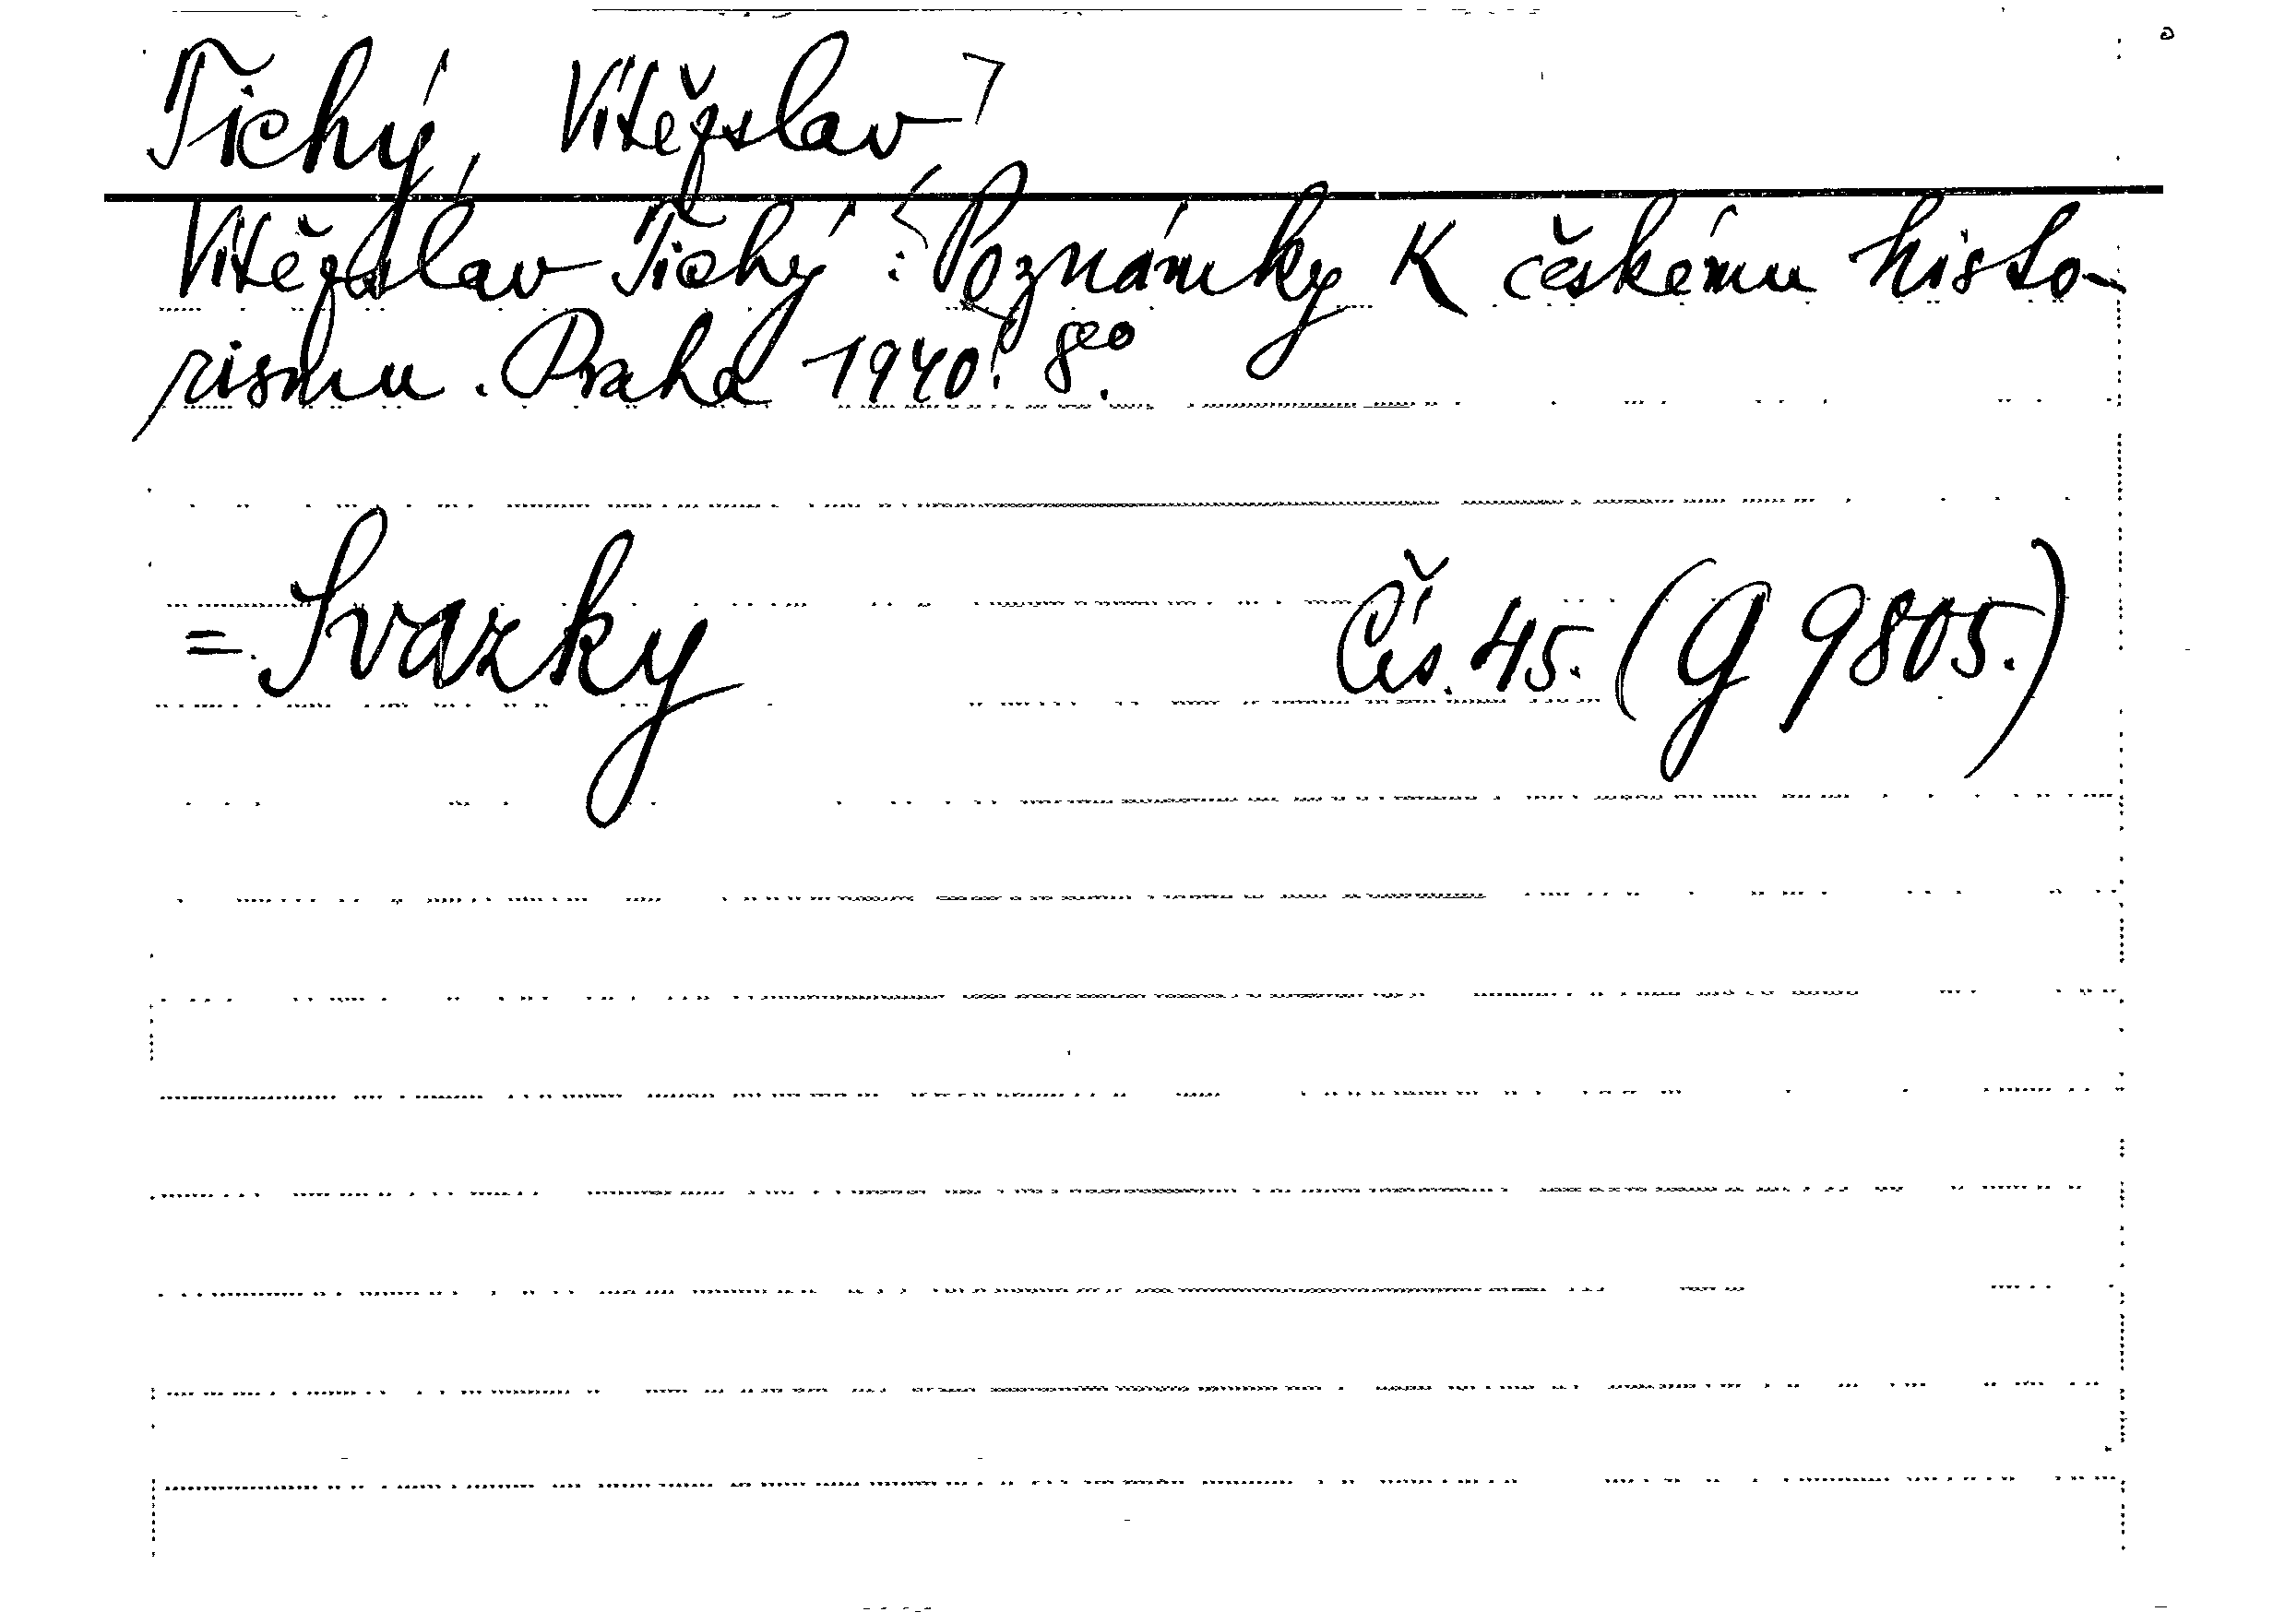 Tichý, Vítězslav
Vítězslav Tichý: Poznámky K českému histo-
rismu. Praha 1940. 8°.
= Svazky Čís. 45. (G 9805.)